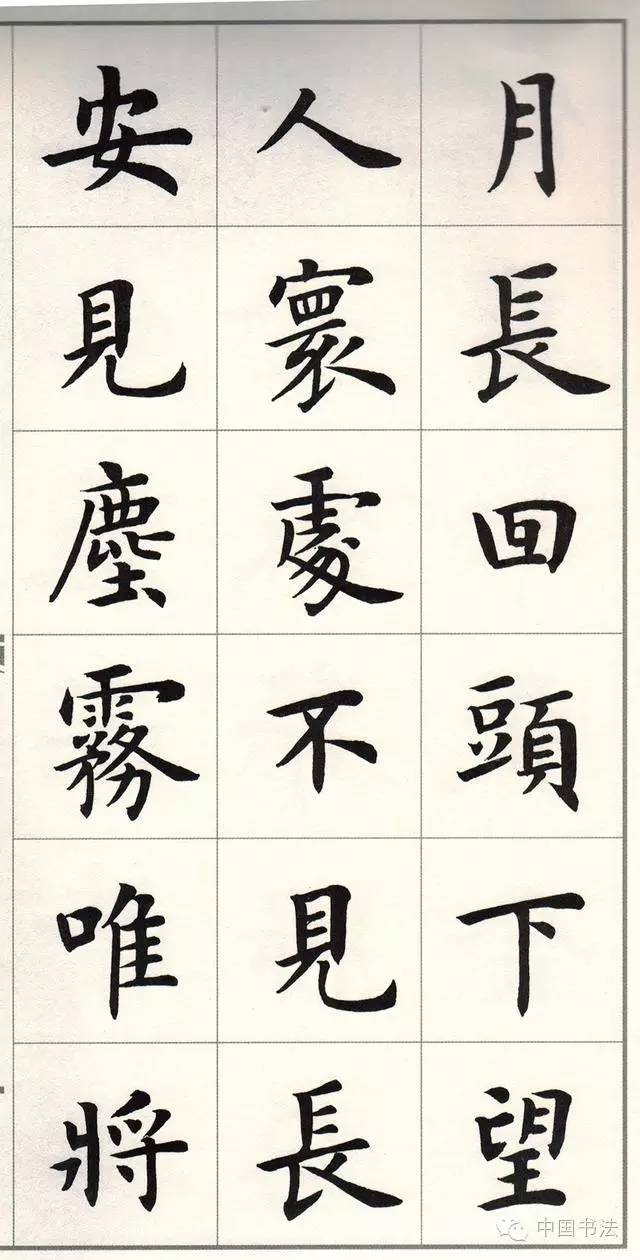 月長回頭下望
人寰處不見長
安見塵霧唯將
中国书法